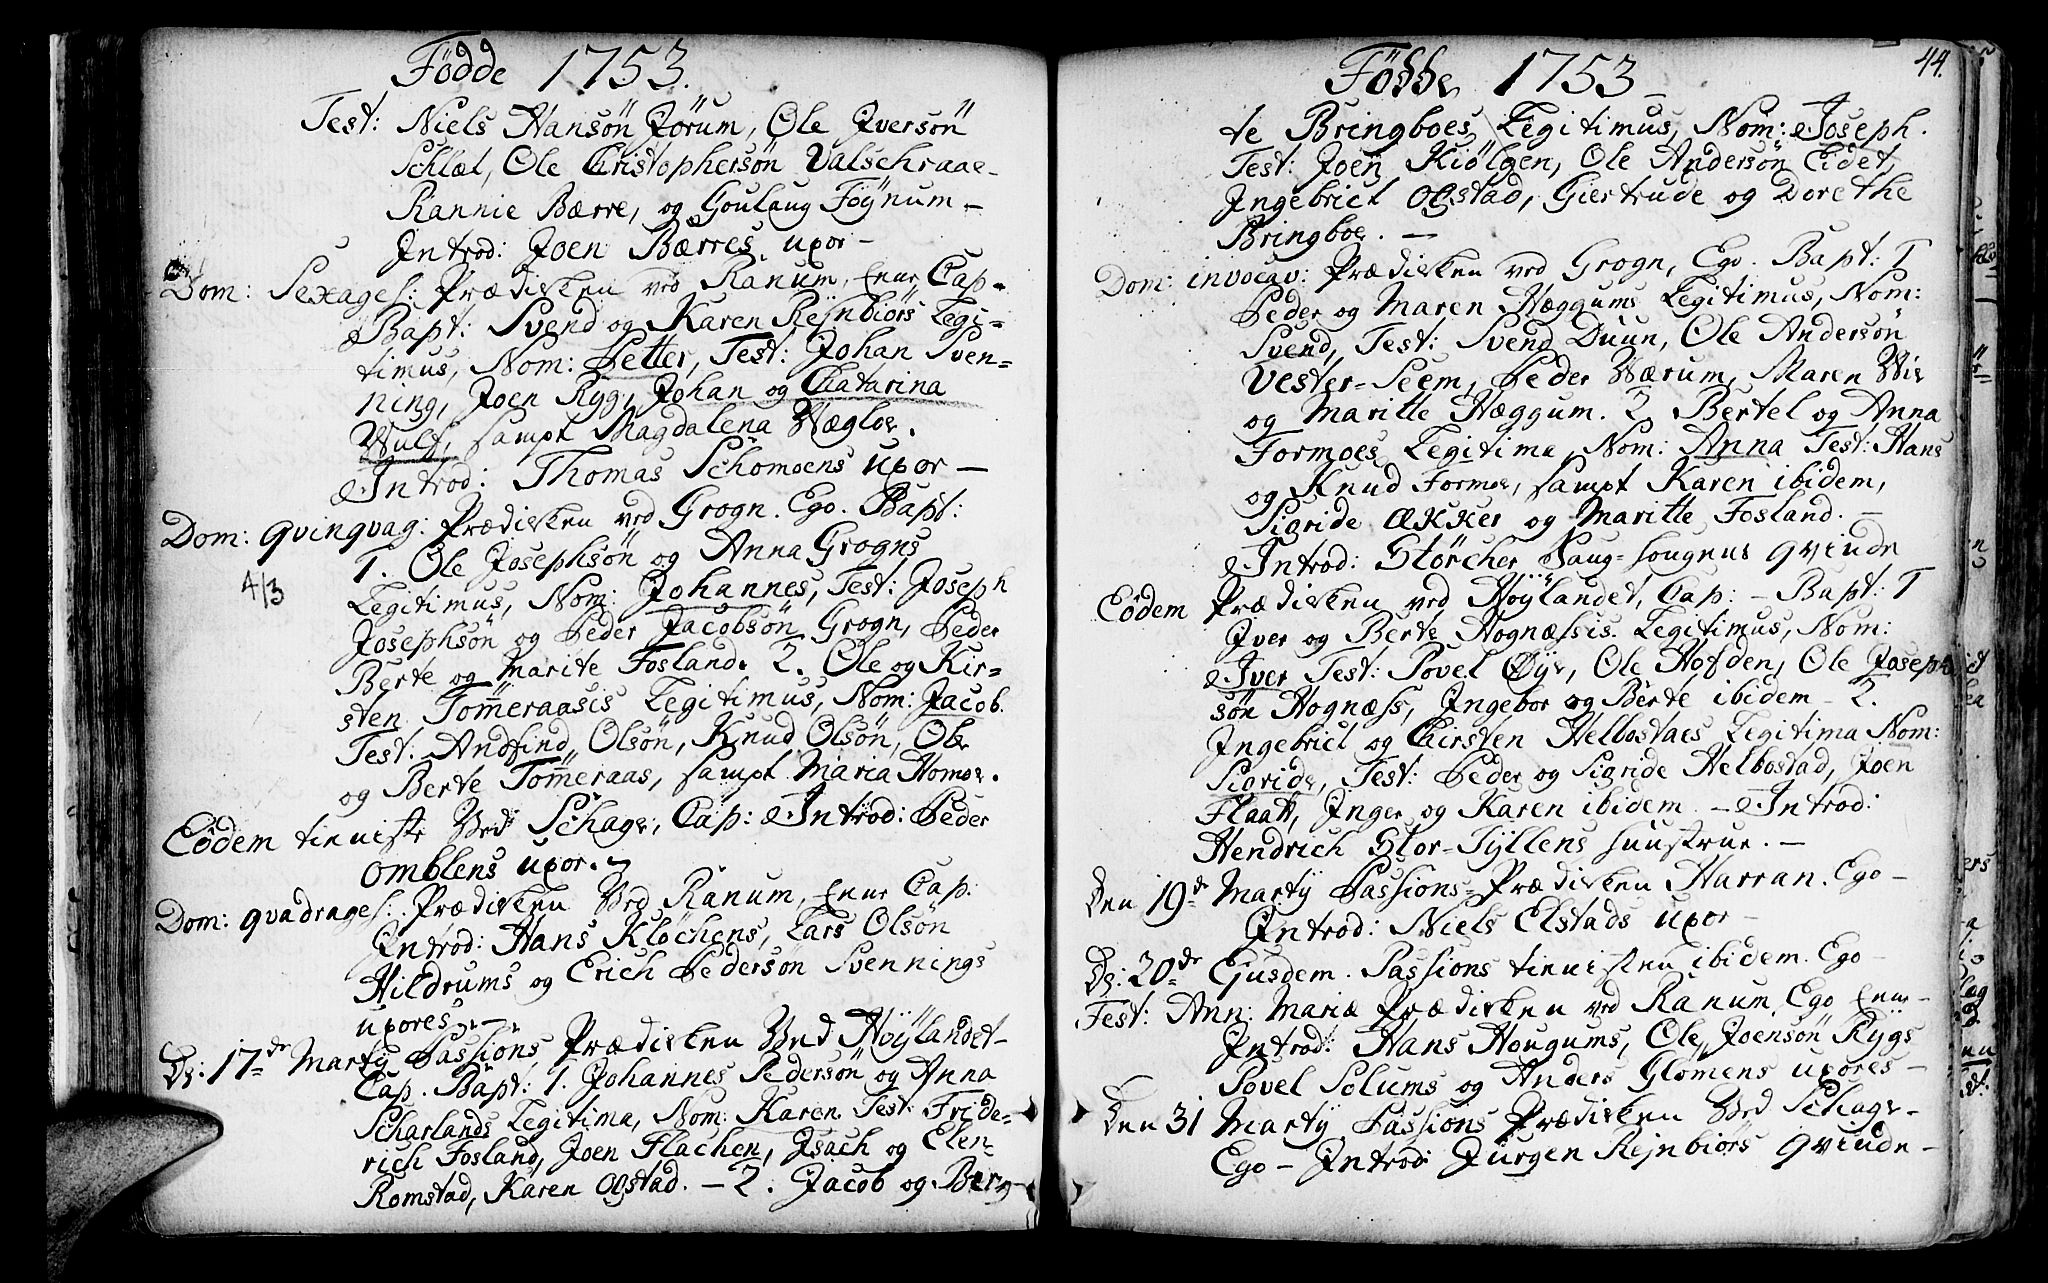 Fødde 1753.
Test: Niels Hansøn Jørum, Ole Jversøn
Schlæt, Ole Christophersøn Valschraae
Rannie Bærre, og Goulaug Føynum –
Jntrod: Joen Bærres uxor –
Dom: Sexages: Prædiken ved Ranum, Cap.
Bapt: Svend og Karen Rejnbiørs Legi-
timus, Nom: Petter, Test: Johan Sven-
ning, Joen Ryg, Johan og Chatarina
Wulf, sampt Magdalena Wægloe.
Introd: Thomas Schomoens uxor –
Dom: qvinqvag: Prædiken ved Grogn. Ego. Bapt:
1. Ole Josephsøn og Anna Grogns
4/3
Legitimus, Nom: Johannes, Test: Joseph
Josephsøn og Peder Jacobsøn Grogn, Peder
Berte og Marite Fosland. 2. Ole og Kir-
sten Tømeraasis Legitimus, Nom: Jacob.
Test: Andfind Olsøn, Knud Olsøn, Ole
og Berte Tømeraas, sampt Maria Homoe.
Eodem tieniste Ved Schage, Cap: Introd: Peder
Omblens uxor.
Dom: qvadrages: Prædiken Ved Ranum, Cap:
Jntrod: Hans Kløchens, Lars Olsøn
Hildrums og Erich Pedersøn Svennings
uxores. –
D: 17de Martÿ Passions Prædiken Ved Høylandet –
Cap. Bapt: 1. Johannes Pedersøn og Anna
Scharlands Legitima, Nom: Karen. Test: Fride-
rich Fosland, Joen Flachen, Jsach og Elen
Romstad, Karen Ogstad. – 2. Jacob og Ber-
Fødde 1753
44.
te Bringboes Legitimus, Nom: Joseph.
Test: Joen Kiølgen, Ole Andersøn Eidet,
Jngebrict Ogstad, Giertrude og Dorethe
Bringboe. –
Dom: invocav: Prædiken ved Grogn, Ego. Bapt: 1
Peder og Maren Hæggums Legitimus, Nom:
Svend, Test: Svend Duun, Ole Andersøn
Vester-Seem, Peder Wærum, Maren Wie
og Maritte Hæggum. 2. Bertel og Anna
Formoes Legitima, Nom: Anna Test: Hans
og Knud Formoe, sampt Karen ibidem,
Sigride Ækker og Maritte Fosland. –
Introd: Størcher qvinde
Eodem Prædiken ved Høylandet, Cap: – Bapt: 1
Jver og Berte Hognæssis Legitimus, Nom:
Iver Test: Povel Øye, Ole Hofden, Ole Joseph
søn Hognæss, Jngebor og Berte ibidem – 2.
Jngebrict og Chirsten Helbostaes Legitima Nom:
Sigride, Test: Peder og Sigride Helbostad, Joen
Flaatt, Jnger og Karen ibidem. – Introd:
Hendrich Stor-Tyllens huustrue. –
Den 19de Martÿ Passions-Prædiken Harran. Ego –
Jntrod: Niels Elstads uxor –
D: 20de Ejusdem. Passions tienisten ibidem. Ego –
Fest: Ann: Mariæ Prædiken ved Ranum, Ego
Jntrod: Hans Hougums, Ole Joensøn Rÿgs
Povel Solums og Anders Glømens uxores –
Den 31 Martÿ Passions Prædiken Ved Schage –
Ego – Jntrod: Jürgen Rejnbiørs qvinde –